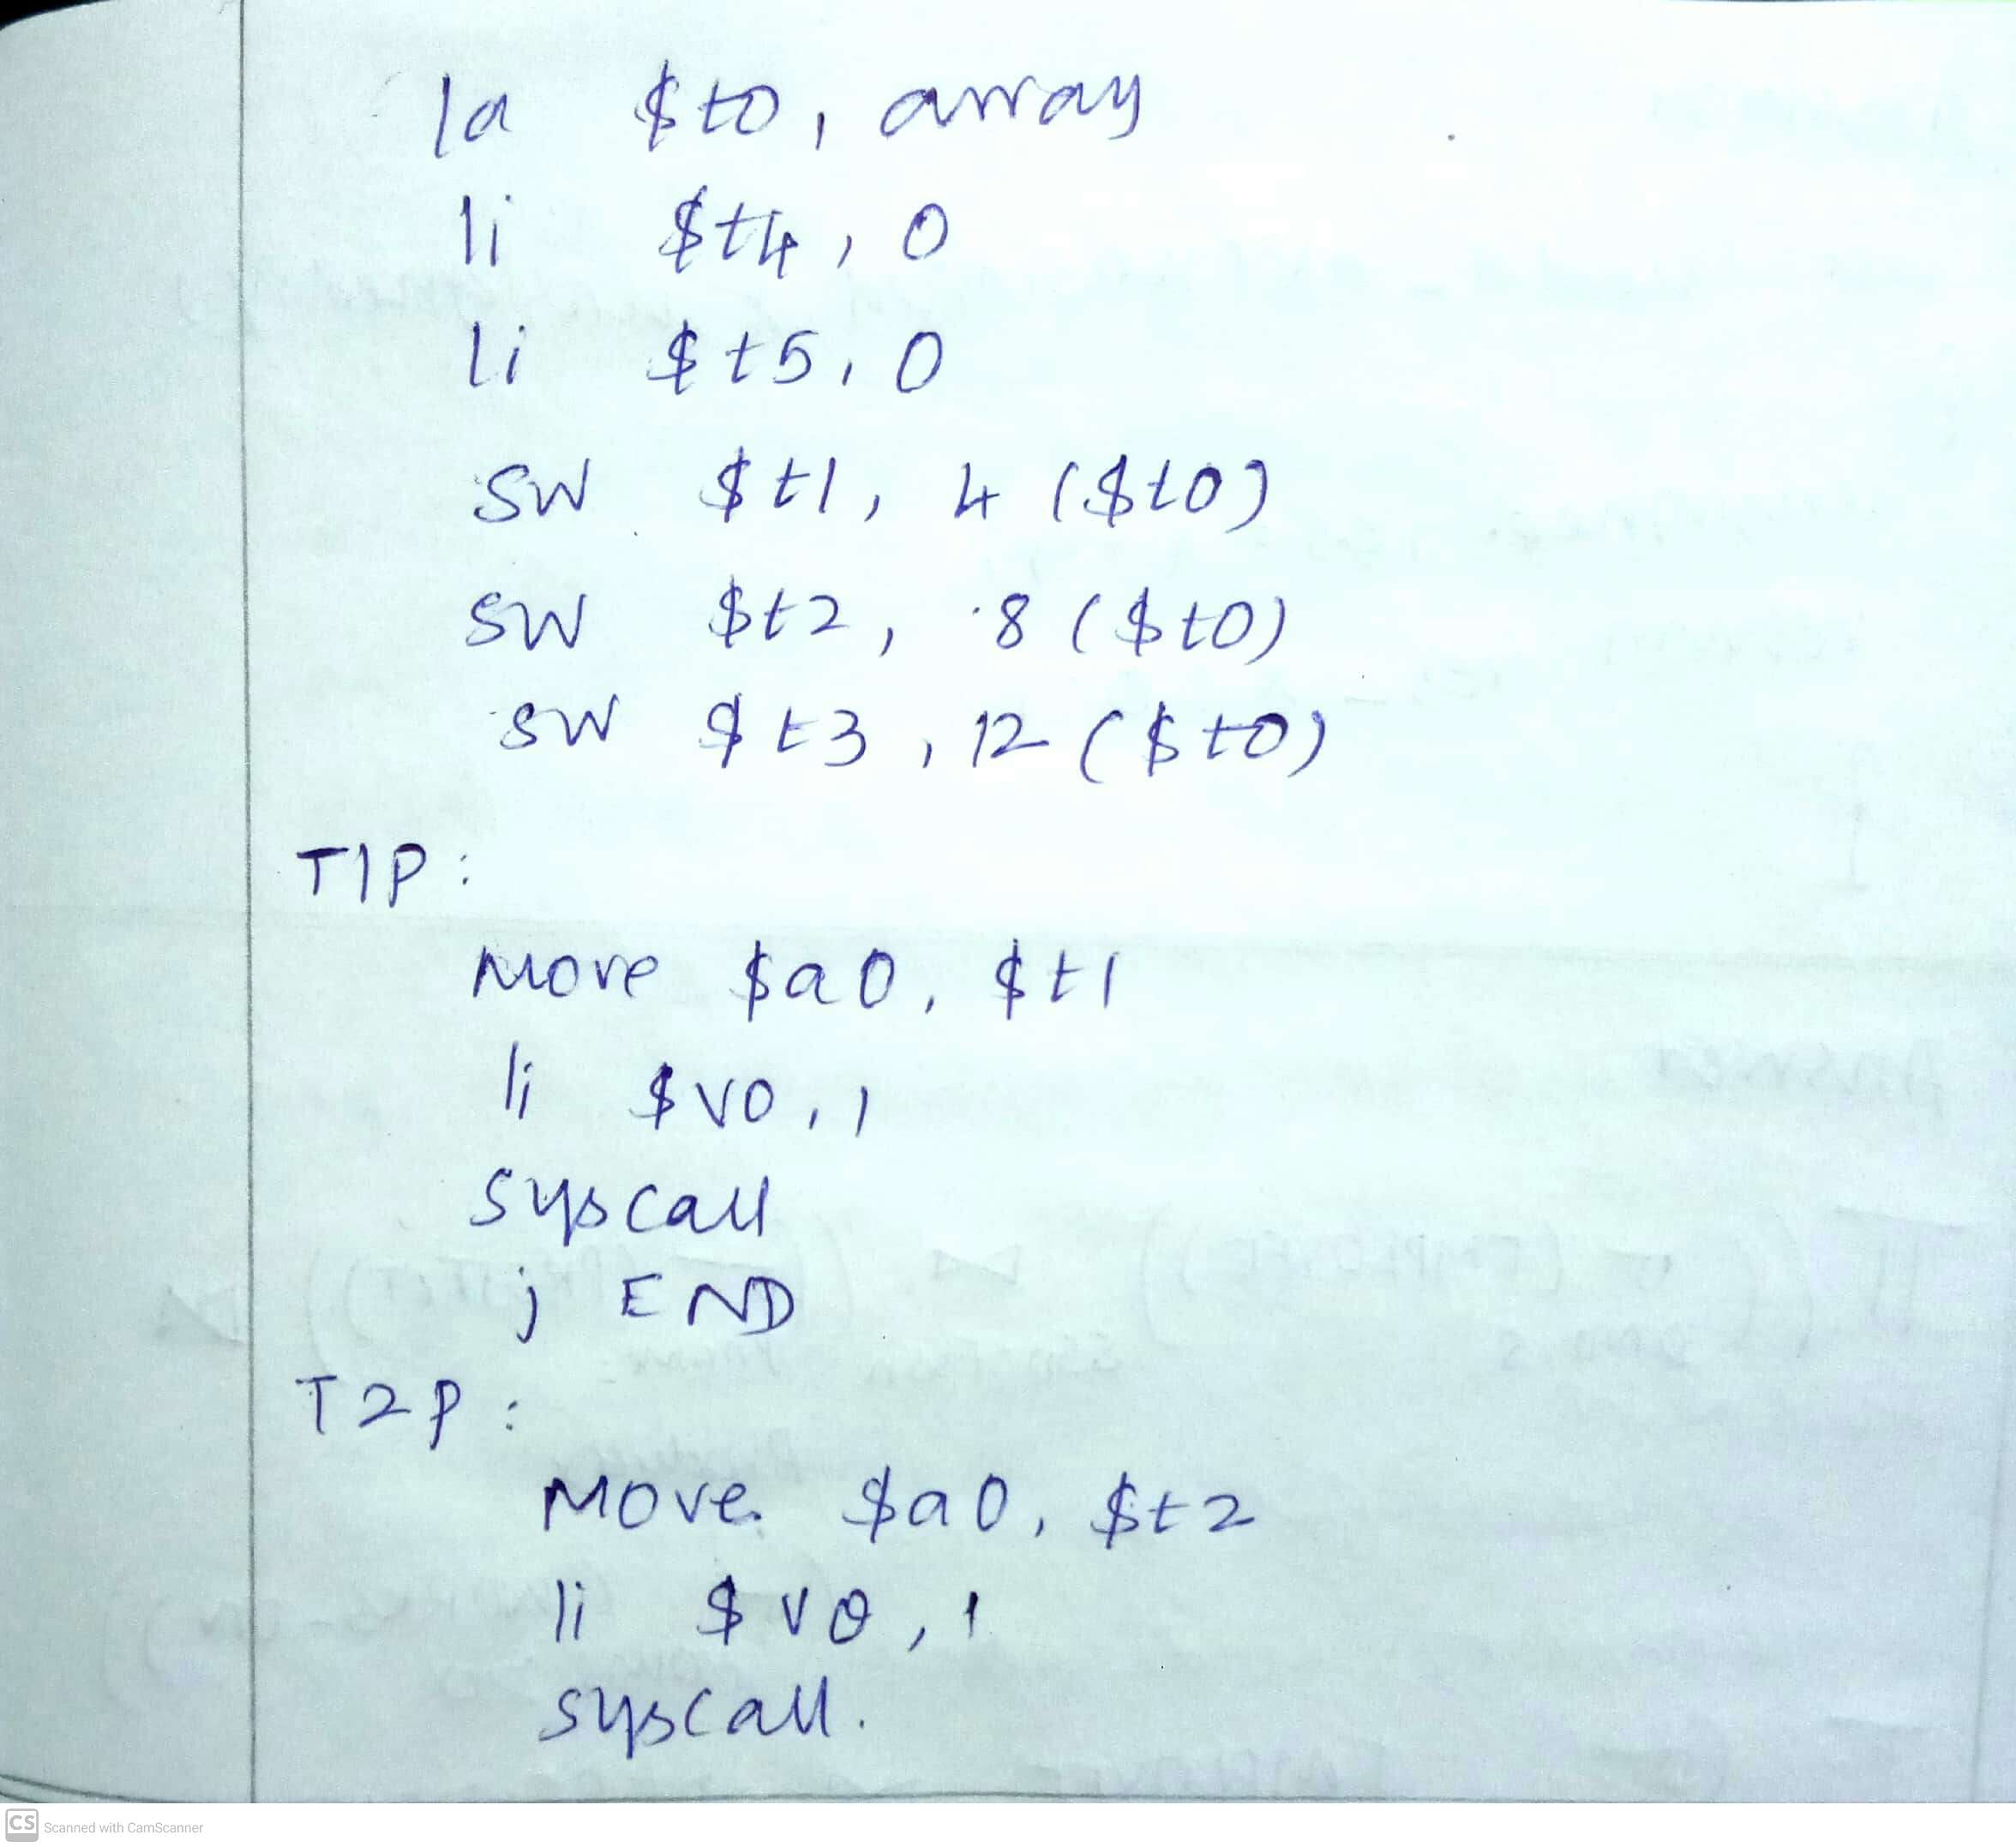 la $t0, array
li $t4, 0
li $t5, 0
sw $t1, 4 ($t0)
sw $t2, 8 ($t0)
sw $t3, 12 ($t0)
T1P:
Move $a0, $t1
li $v0, 1
syscall
j END
T2P:
Move $a0, $t2
li $v0, 1
syscall.
CS Scanned with CamScanner